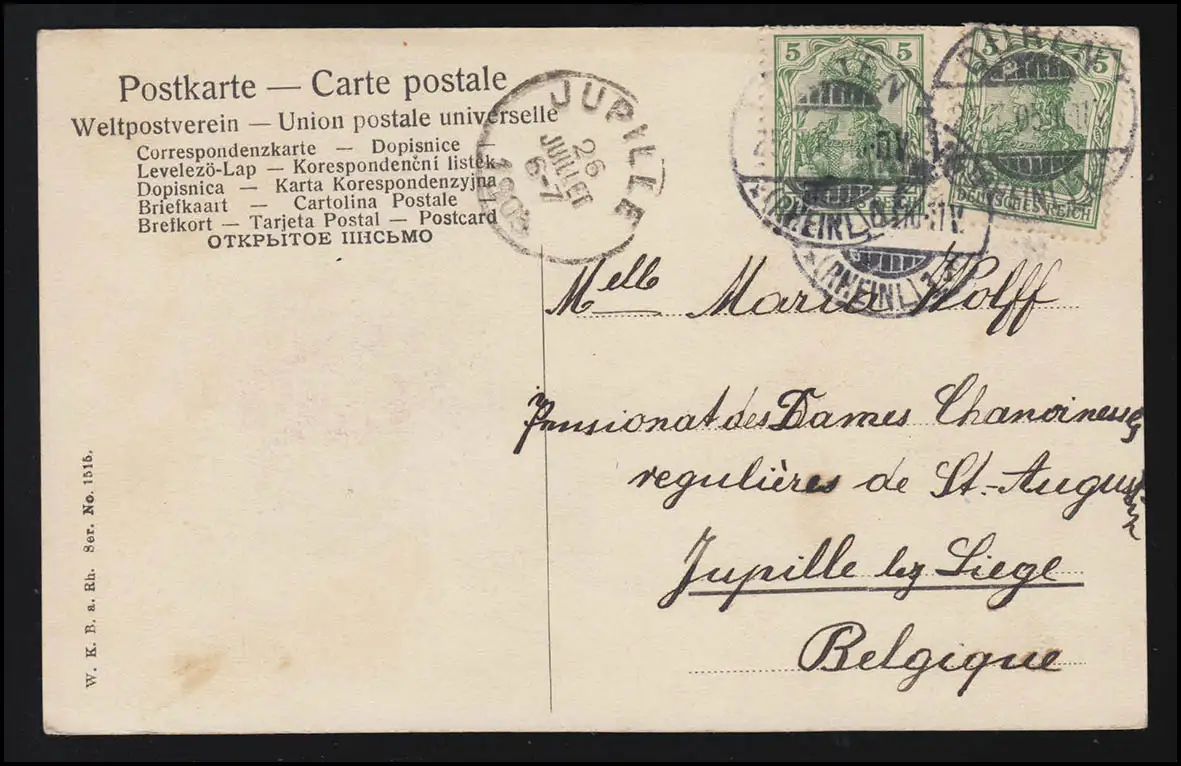 Postkarte — Carte postale
Weltpostverein — Union postale universelle
Correspondenzkarte — Dopisnice —
Levelező-Lap — Korespondenční listěk
Dopisnica — Karta Korespondenzyjna
Briefkaart — Cartolina Postale
Brefkort — Tarjeta Postal — Postcard
ОТКРЫТОЕ ПИСЬМО
JUPILLE
26
JUILLET
6-7
5 5
5 5
DEUTSCHES REICH
DÜREN
(RHEINL)
(RHEINL)
Melle Maria Wolff
Pensionat des Dames Chanoinesses
regulières de St.-Augustin
Jupille lez Liege
Belgique
W. K. B. a. Rh. Ser. No. 1515.